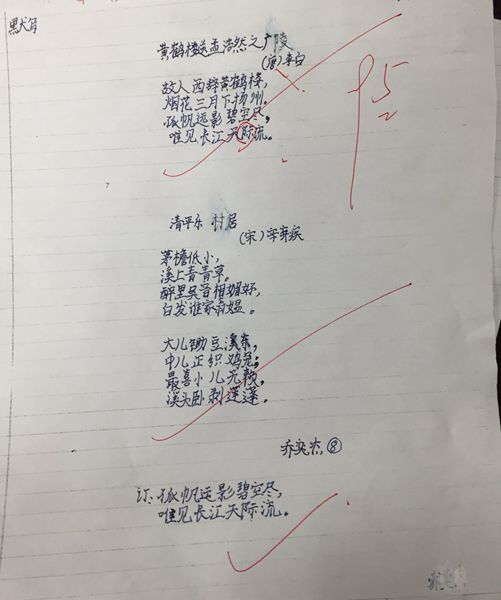 默写
黄鹤楼送孟浩然之广陵
(唐)李白
故人西辞黄鹤楼,
烟花三月下扬州。
孤帆远影碧空尽,
唯见长江天际流。
95
清平乐 村居
(宋)辛弃疾
茅檐低小,
溪上青青草。
醉里吴音相媚好,
白发谁家翁媪。
大儿锄豆溪东,
中儿正织鸡笼;
最喜小儿无赖,
溪头卧剥莲蓬。
乔奕杰⑧
订:孤帆远影碧空尽,
唯见长江天际流。